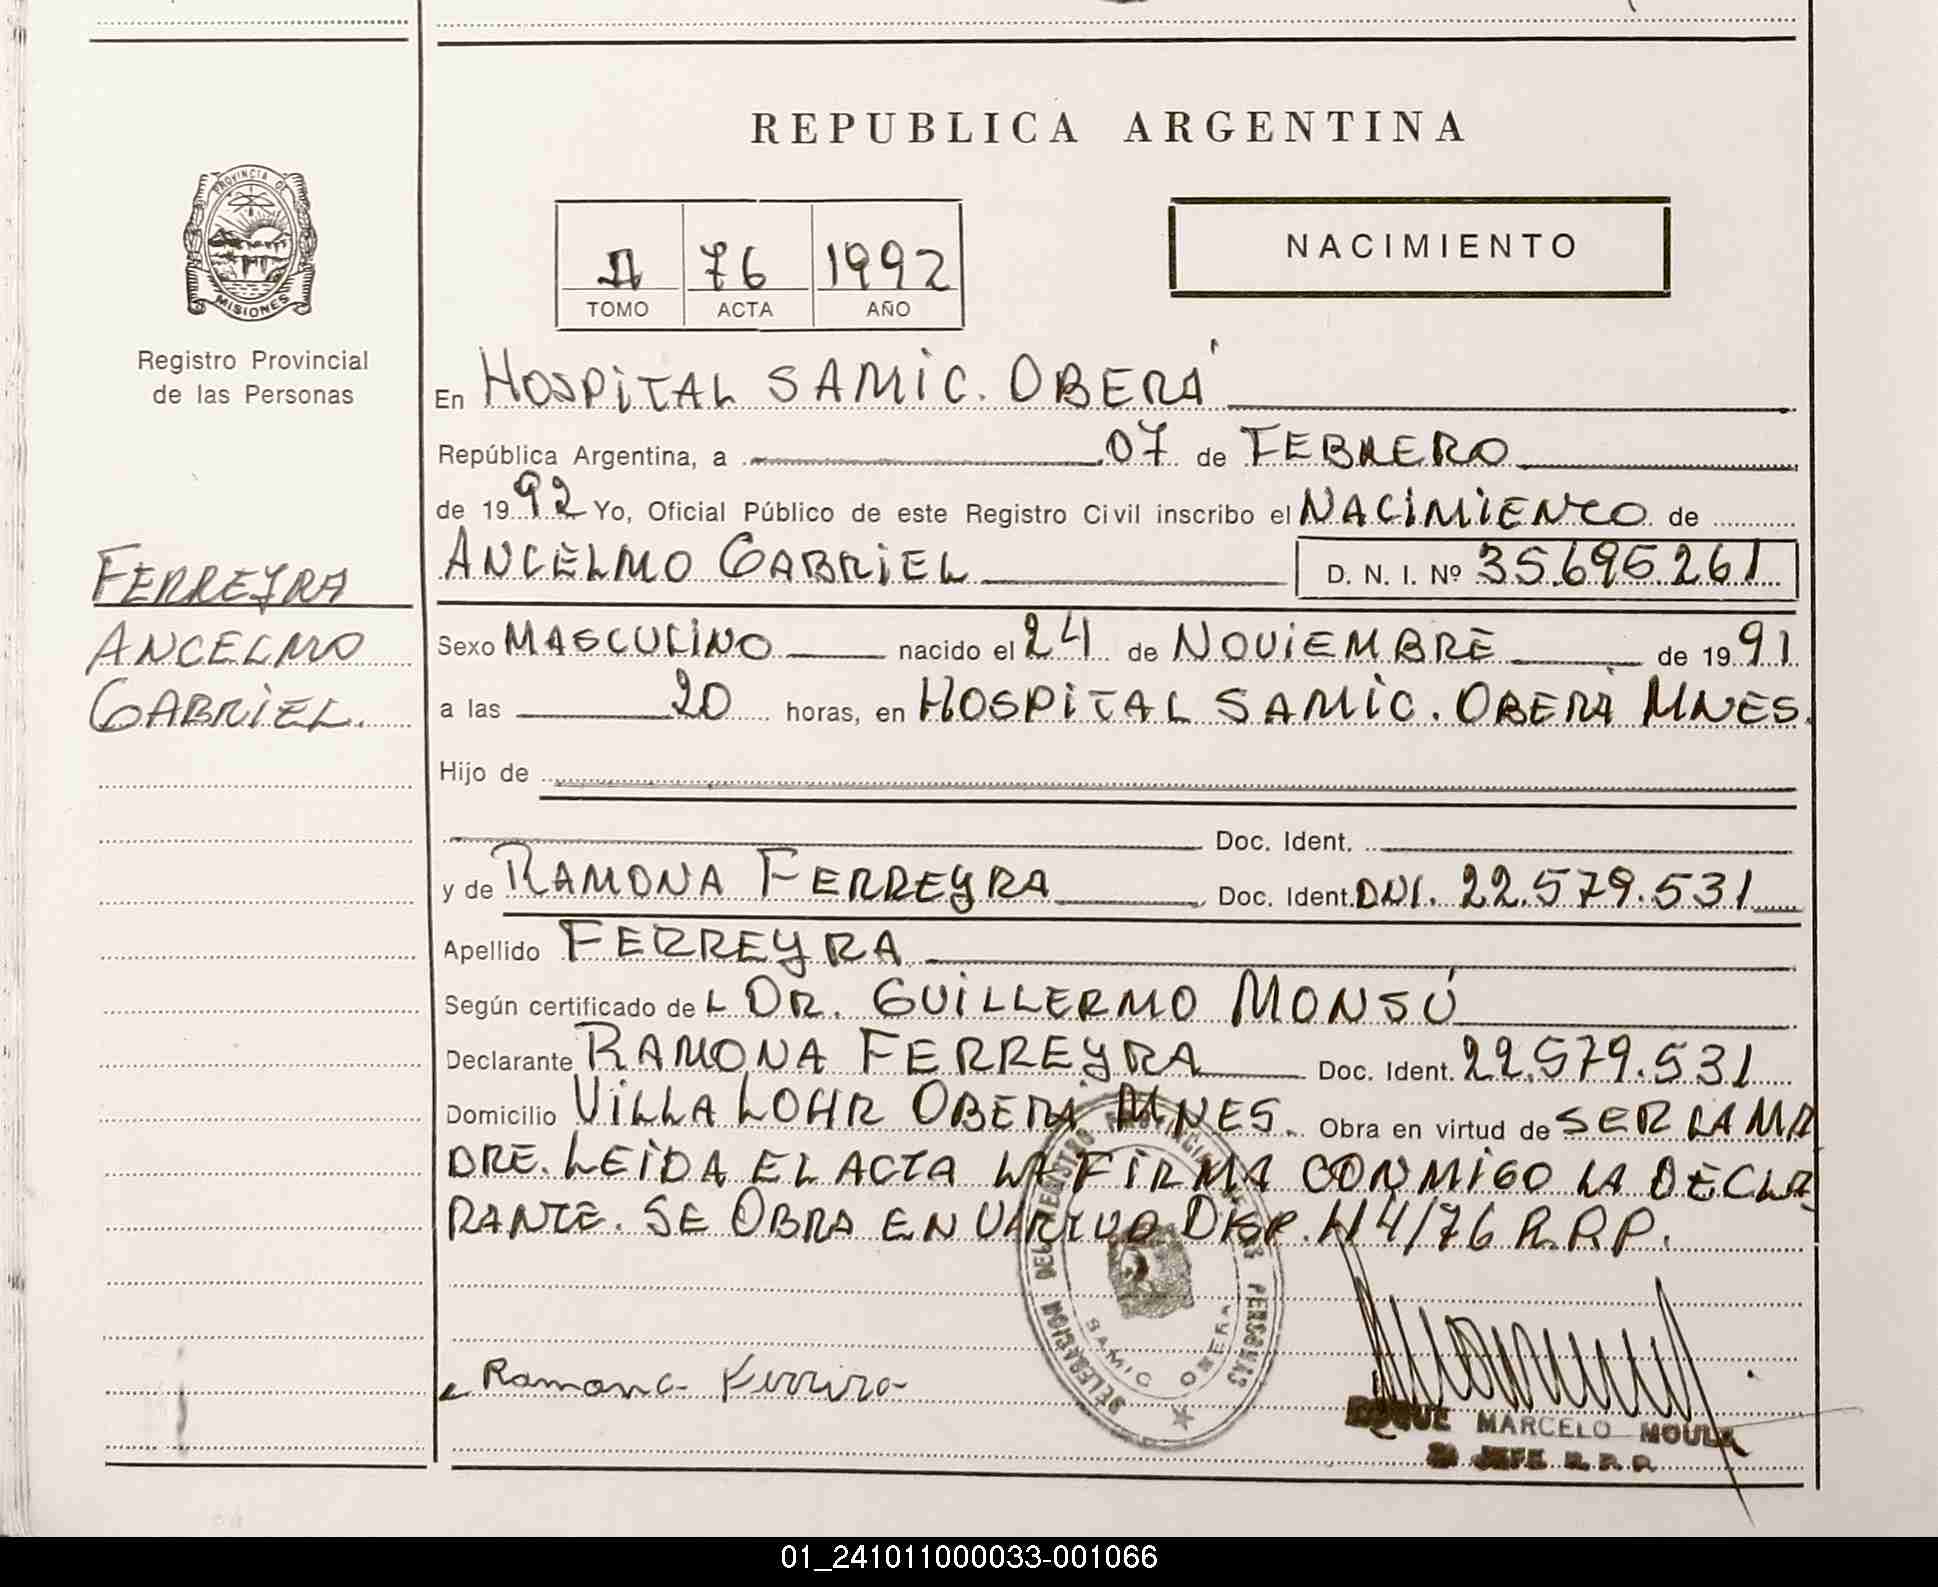 REPUBLICA ARGENTINA
PROVINCIA DE
MISIONES
Registro Provincial
de las Personas
II 76 1992
TOMO ACTA AÑO
NACIMIENTO
En HOSPITAL SAMIC. OBERÁ
República Argentina, a 07 de FEBRERO
de 1992 Yo, Oficial Público de este Registro Civil inscribo el NACIMIENTO de
ANCELMO GABRIEL D. N. I. Nº 35.695.261
FERREYRA
ANCELMO
GABRIEL.
Sexo MASCULINO nacido el 24 de NOVIEMBRE de 1991
a las 20 horas, en HOSPITAL SAMIC. OBERÁ MNES.
Hijo de
Doc. Ident.
y de RAMONA FERREYRA Doc. Ident. DNI. 22.579.531
Apellido FERREYRA
Según certificado de L DR. GUILLERMO MONSÚ
Declarante RAMONA FERREYRA Doc. Ident. 22.579.531
Domicilio VILLA LOHR OBERÁ MNES. Obra en virtud de SER LA MA
DRE. LEIDA EL ACTA LA FIRMA CONMIGO LA DECLA
RANTE. SE OBRA EN VIRTUD DISP. 114/76 R.P.P.
DELEGACION DEL REGISTRO PROVINCIAL DE LAS PERSONAS
SAMIC OBERA
Ramona Ferrira
ROQUE MARCELO MOULA
JEFE R.P.P.
01_241011000033-001066